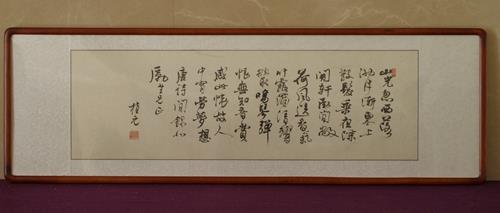 山光忽西落
池月漸東上
散髮乘夜涼
開軒臥閒敞
荷風送香氣
竹露滴清響
欲取鳴琴彈
恨無知音賞
感此懷故人
中宵勞夢想
唐詩